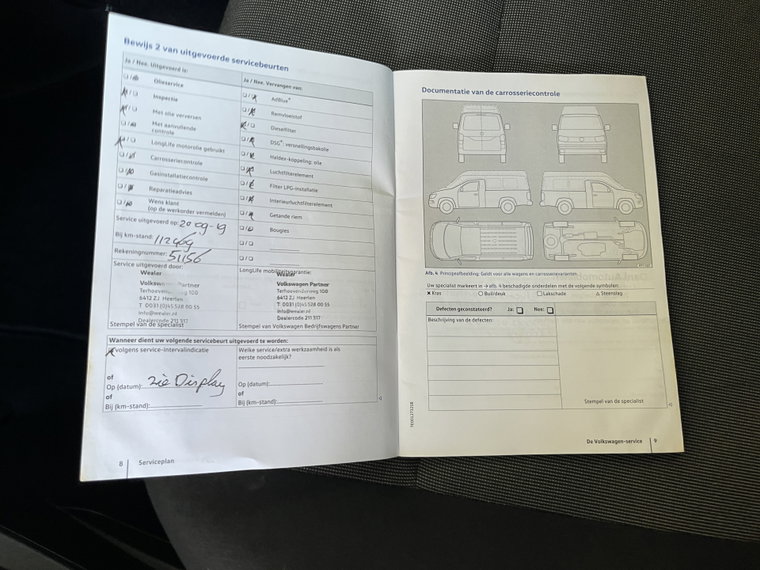 Bewijs 2 van uitgevoerde servicebeurten
Ja / Nee. Uitgevoerd is:
Olieservice
Inspectie
Met olie verversen
Met aanvullende
controle
LongLife motorolie gebruikt
Carrosseriecontrole
Gasinstallatiecontrole
Reparatieadvies
Wens klant
(op de werkorder vermelden)
Service uitgevoerd op: 20-09-19
Bij km-stand: 112469
Rekeningnummer: 51156
Service uitgevoerd door:
Wealer
Volkswagen Partner
Terhoevenderweg 100
6412 ZJ Heerlen
T 0031 (0)45 528 00 55
info@wealer.nl
Dealercode 211 517
Stempel van de specialist
Ja / Nee. Vervangen van:
AdBlue®
Remvloeistof
Dieselfilter
DSG®: versnellingsbakolie
Haldex-koppeling: olie
Luchtfilterelement
Filter LPG-installatie
Interieurluchtfilterelement
Getande riem
Bougies
LongLife mobiliteitsgarantie:
Wealer
Volkswagen Partner
Terhoevenderweg 100
6412 ZJ Heerlen
T 0031 (0)45 528 00 55
info@wealer.nl
Dealercode 211 517
Stempel van Volkswagen Bedrijfswagens Partner
Wanneer dient uw volgende servicebeurt uitgevoerd te worden:
volgens service-intervalindicatie
of
Op (datum): zie Display
of
Bij (km-stand):
Welke service/extra werkzaamheid is als
eerste noodzakelijk?
Op (datum):
of
Bij (km-stand):
8 Serviceplan
Documentatie van de carrosseriecontrole
Afb. 4 Principeafbeelding: Geldt voor alle wagens en carrosserievarianten.
Uw specialist markeert in → afb. 4 beschadigde onderdelen met de volgende symbolen:
× Kras ○ Buil/deuk □ Lakschade △ Steenslag
Defecten geconstateerd? Ja: Nee:
Beschrijving van de defecten:
Stempel van de specialist
De Volkswagen-service 9